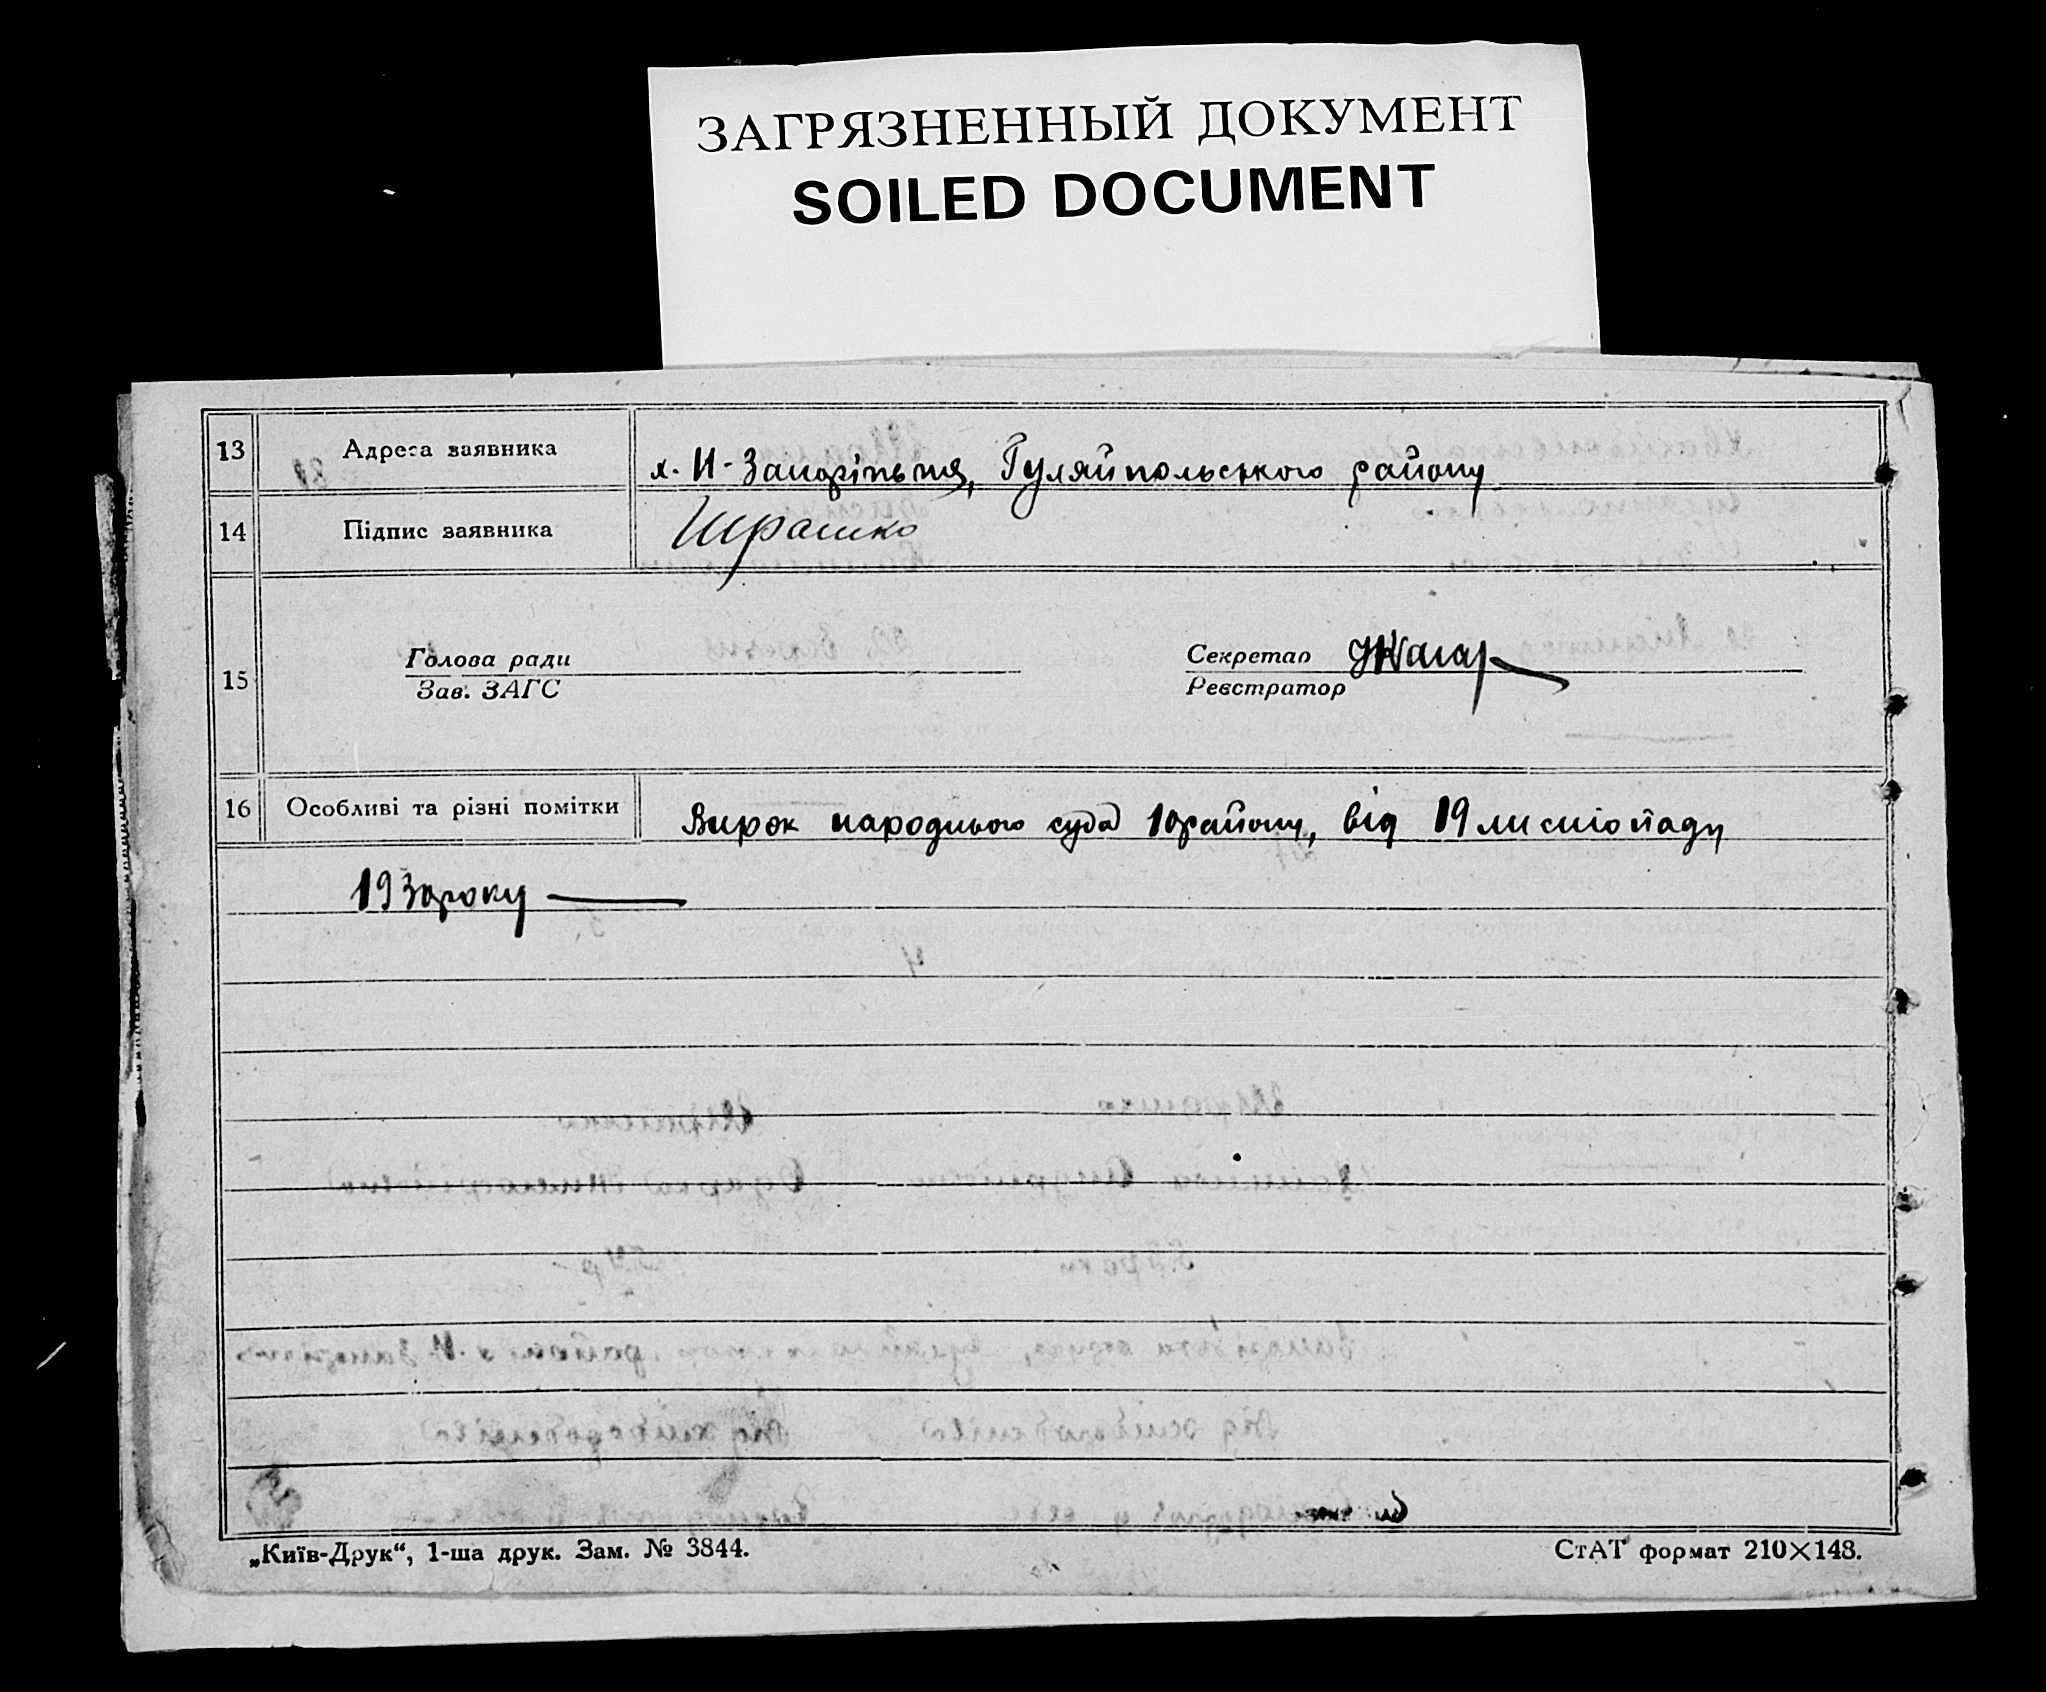 ЗАГРЯЗНЕННЫЙ ДОКУМЕНТ
SOILED DOCUMENT
13 Адреса заявника х. Н-Запоріжжя, Гуляйпольського району
14 Підпис заявника Шрамко
15 Голова ради
Зав. ЗАГС
Секретар
Реєстратор
16 Особливі та різні помітки Вирок народнього суда 10району, від 19 листопаду
1930року
„Київ-Друк“, 1-ша друк. Зам. № 3844.
СтАТ формат 210×148.